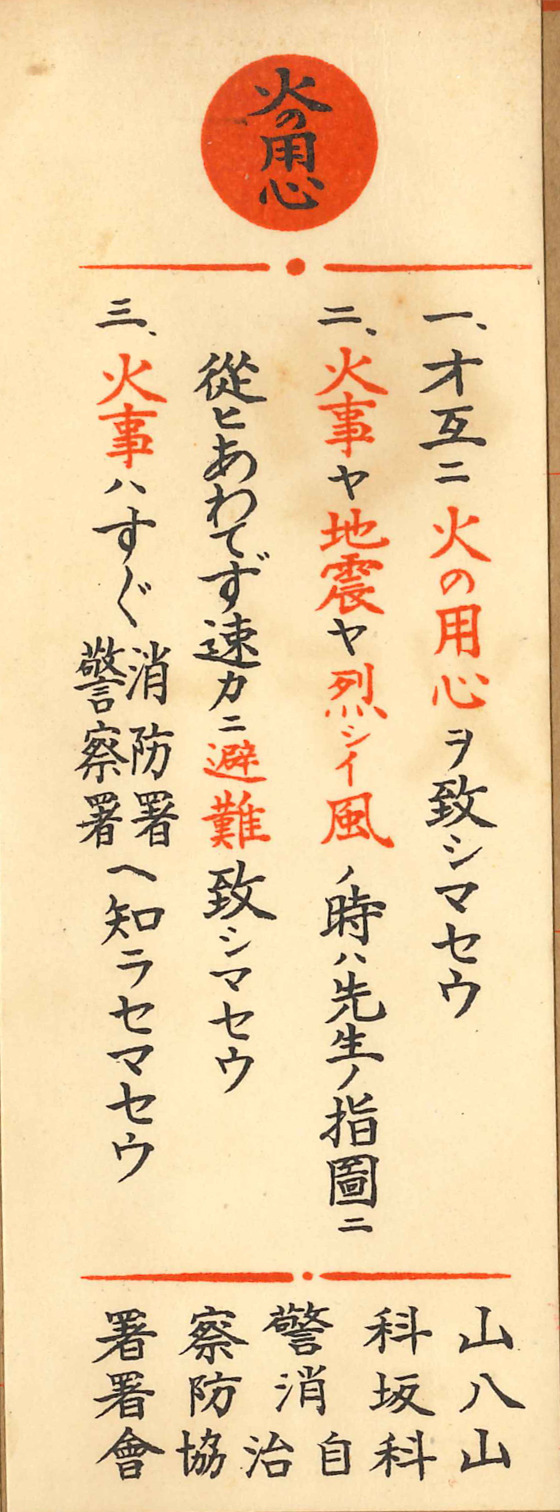 火の用心
一、オ互ニ火の用心ヲ致シマセウ
二、火事ヤ地震ヤ烈シイ風ノ時ハ先生ノ指圖ニ
從ヒあわてず速カニ避難致シマセウ
三、火事ハすぐ消防署警察署ヘ知ラセマセウ
山科警察署
八坂消防署
山科自治協會